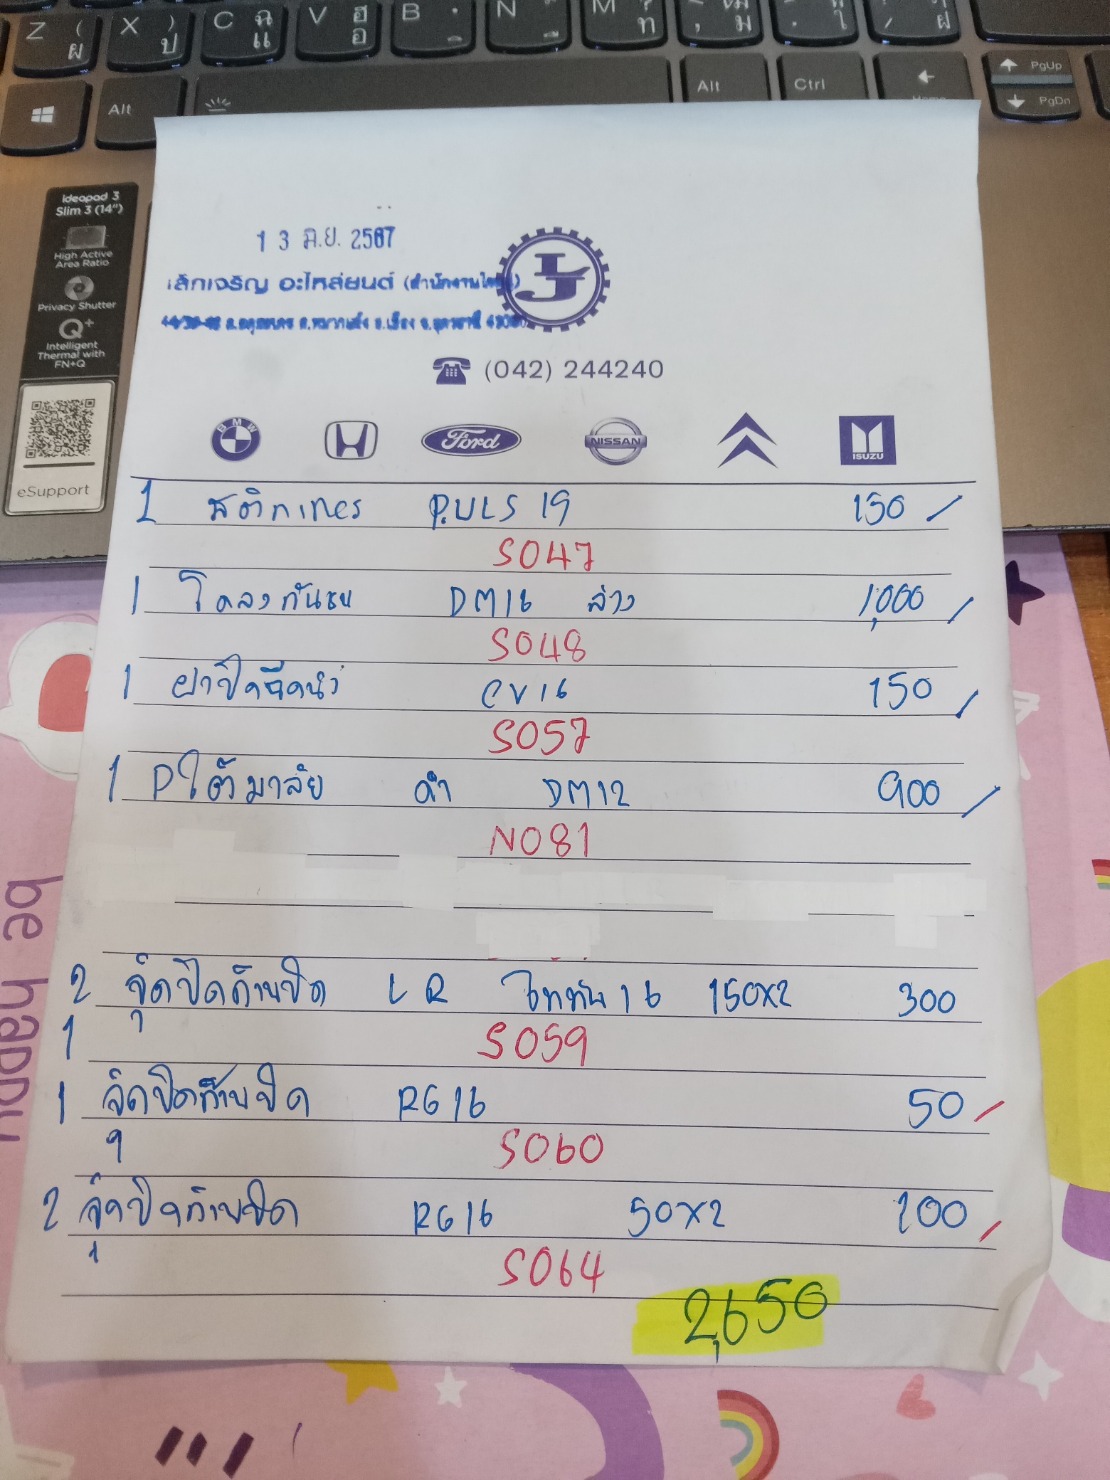 Z ( ผ
X ) ป
C ฉ แ
V ฮ อ
B
N
M ท
Alt
Alt
Ctrl
PgUp
PgDn
Ideapad 3
Slim 3 (14")
High Active
Area Ratio
Privacy Shutter
Q+
Intelligent
Thermal with
FN+Q
eSupport
13 มิ.ย. 2567
เลิกเจริญ อะไหล่ยนต์
(042) 244240
BMW
Ford
NISSAN
ISUZU
1 PULS 19 150
S047
1 โครงกันชน DM16 ล่าง 1,000
S048
1 CV16 150
S057
1 Pใต้มาลัย ดำ DM12 900
N081
2 จุ๊ดปิดก้านปัด L R ไททัน 16 150x2 300
1 S059
1 จุ๊ดปิดก้านปัด RG16 50
S060
2 จุ๊ดปิดก้านปัด RG16 50x2 100
S064
2,650
be happy